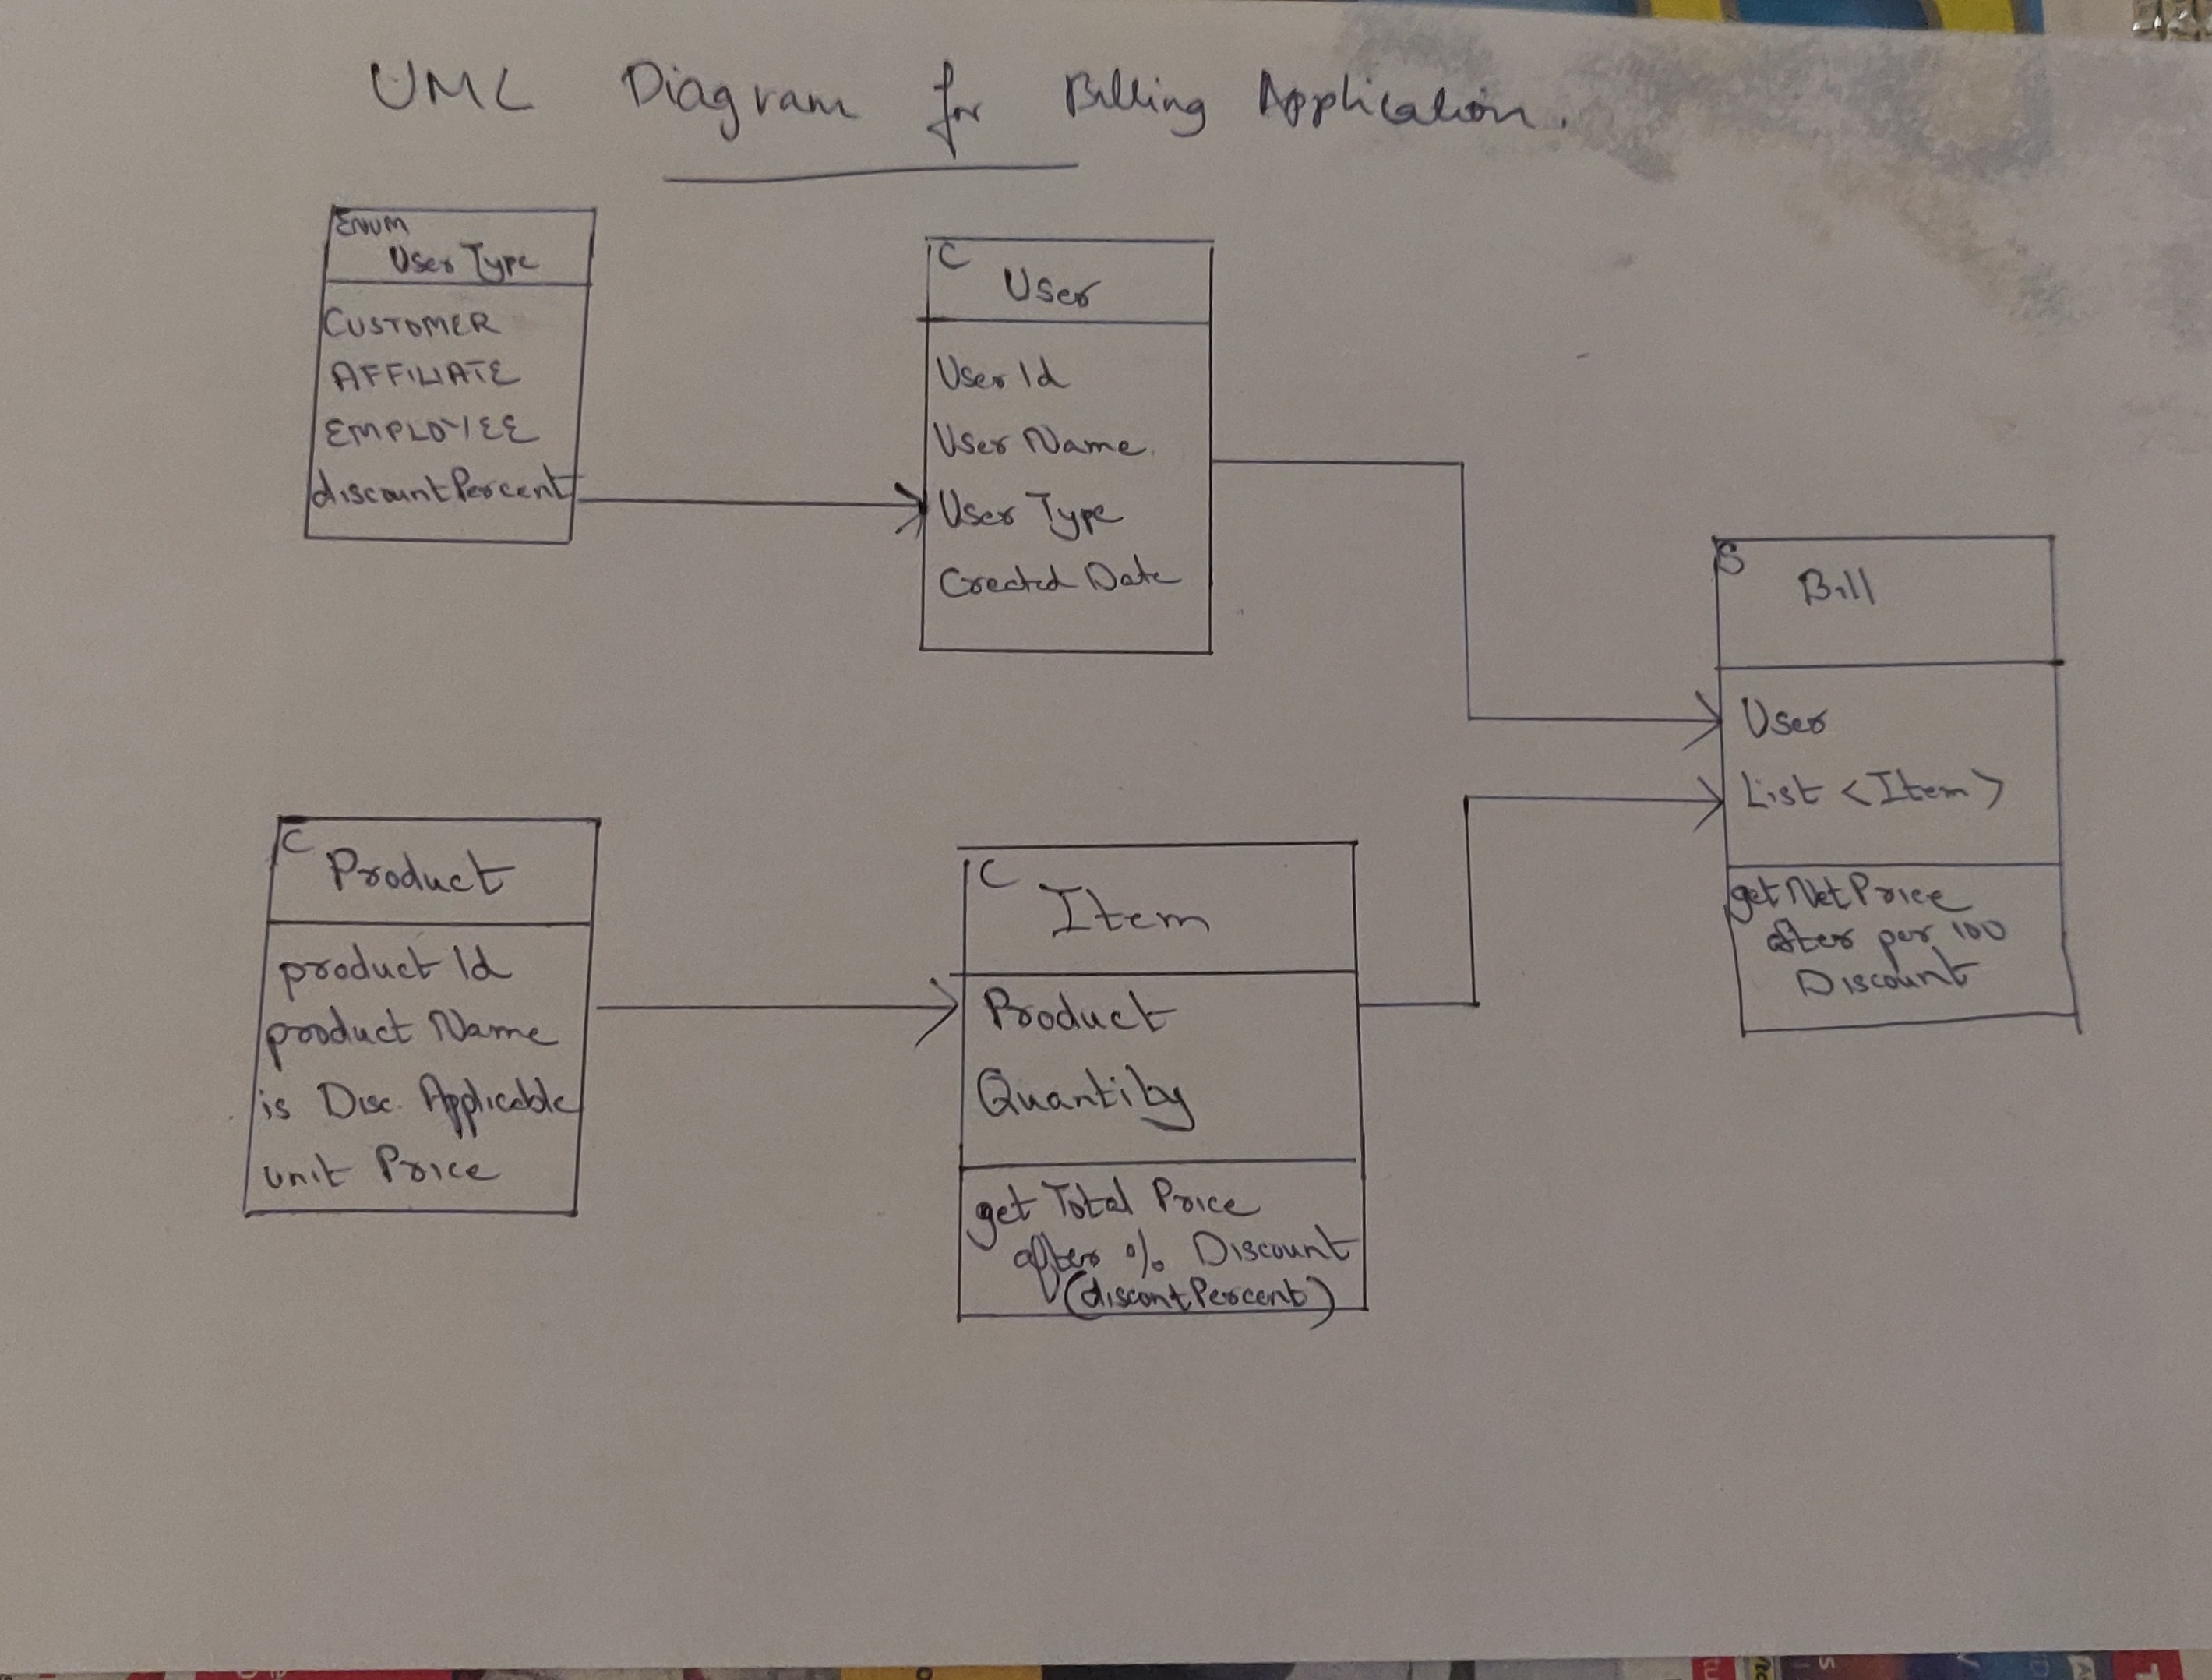 UML Diagram for Billing Application.
ENUM
User Type
CUSTOMER
AFFILIATE
EMPLOYEE
discountPercent
C
User
User Id
User Name
User Type
Created Date
S
Bill
User
List <Item>
getNetPrice
after per 100
Discount
C
Product
product Id
product Name
is Disc. Applicable
unit Price
C
Item
Product
Quantity
get Total Price
after % Discount
(discontPercent)